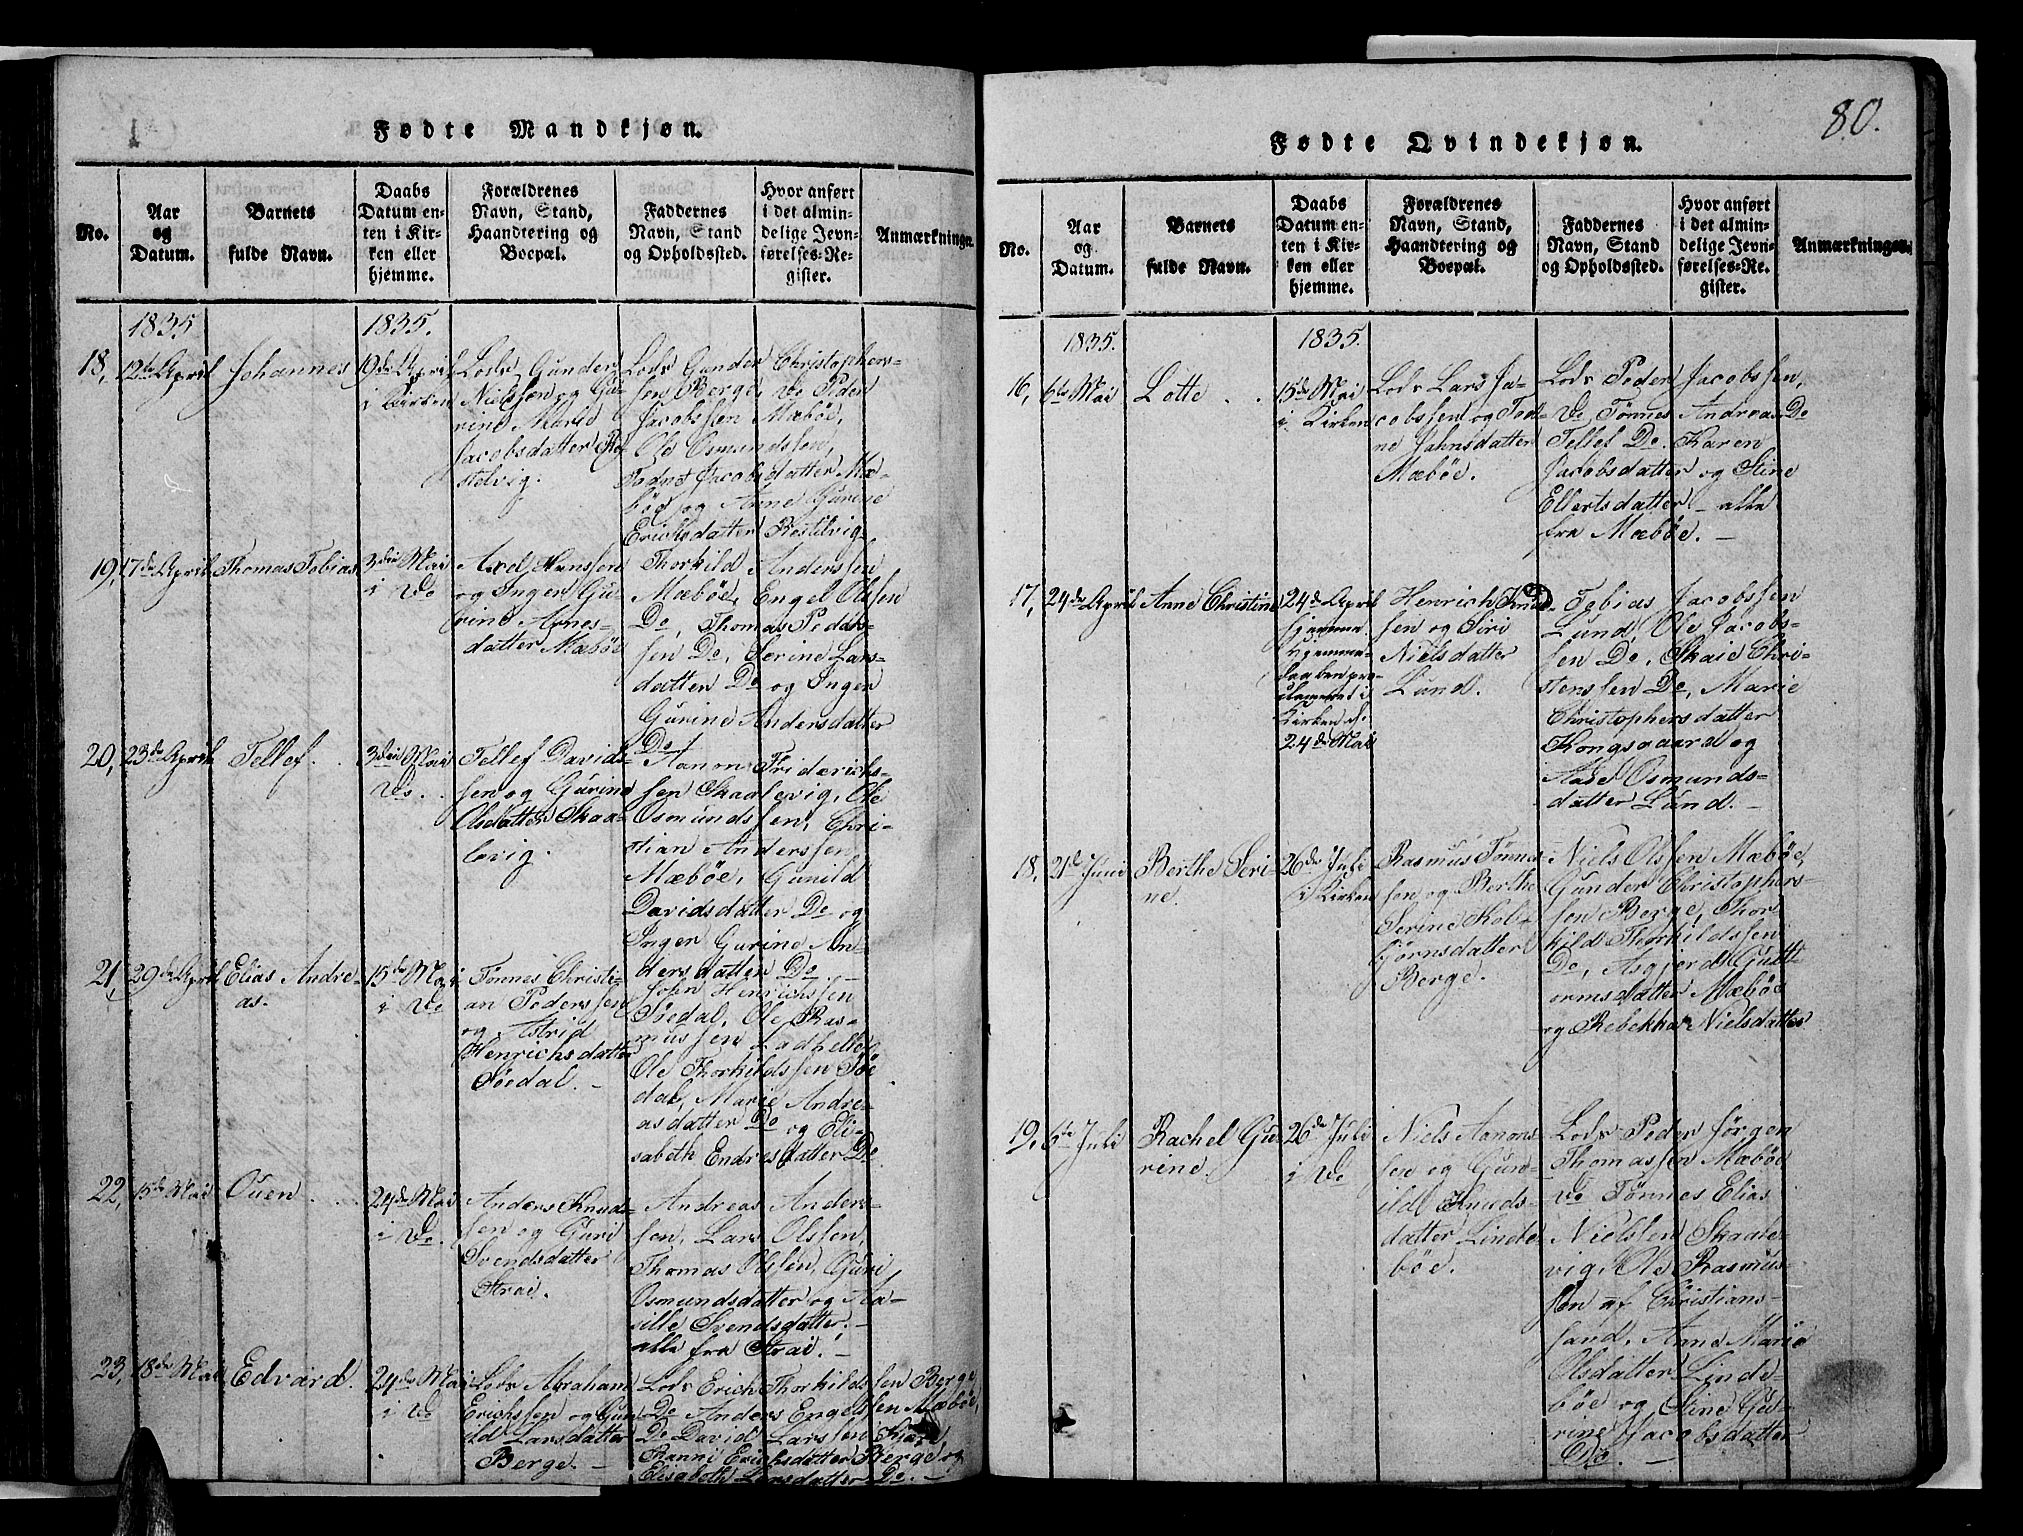 Fødte Mandkjøn.
No.
Aar
og
Datum.
Barnets
fulde Navn.
Daabs
Datum en-
ten i Kir-
ken eller
hjemme.
Forældrenes
Navn, Stand,
Haandtering og
Boepæl.
Faddernes
Navn, Stand
og Opholdssted.
Hvor anført
i det almin-
delige Jevn-
førelses-Re-
gister.
Anmærkninger.
1835.
1835.
18, 12te April
Johannes
19de April
i Kirken
Lods Gunder
Nielssen og Gu-
rine Marie
Jacobsdatter Ro-
stelvig.
Lods Gunder Christophers-
sen Berge, Do Peder
Jacobssen Mæbøe,
Ole Osmundssen,
Todne Jacobsdatter Mæ-
bøe og Anne Gurine
Erichsdatter Rostelvig
19, 17de April
Thomas Tobias
3die Mai
i Do
Axel Hanssen
og Inger Gu-
rine Arnes-
datter Mæbøe
Thorkild Anderssen
Mæbøe, Engel Olssen
Do, Thomas Peders-
sen Do, Serine Lars-
datter Do og Inger
Gurine Andersdatter
Do
20, 23de April
Tellef.
3die Mai
Do
Tellef Davids-
sen og Gurine
Olsdatter Skaa-
levig.
Aanon Friderichs-
sen Skaalevig, Ole
Osmundssen, Chri-
stian Anderssen
Mæbøe, Gunild
Davidsdatter Do og
Inger Gurine An-
dersdatter Do
21, 29de April
Elias Andre-
as.
15de Mai
i Do
Tønnes Christi-
an Pederssen
og Astrid
Henrichsdatter
Søedal.
John Henrichssen
Søedal, Ole Ras-
mussen
Ole Thorkildssen Søe
dal, Marie Andre-
asdatter Do og Eli-
sabeth Endresdatter Do
22, 15de Mai
Ouen
24de Mai
i Do.
Anders Knud-
sen og Guri
Svendsdatter
Strai.
Andreas Anders-
sen, Lars Olssen,
Thomas Olssen, Guri
Osmundsdatter og Aa-
ville Svendsdatter,
alle fra Strai.
23, 18de Mai
Edvard.
24de Mai
i Do
Lods Abraham
Erichssen og Gun
ild Larsdatter
Berge.
Lods Erich Thorkildssen Berge
Do Anders Engelssen Mæbøe,
Do David Larssen
Ranni Erichsdatter Berge og
Elisabeth Larsdatter Do.
80.
Fødte Qvindekjøn.
No.
Aar
og
Datum.
Barnets
fulde Navn.
Daabs
Datum en-
ten i Kir-
ken eller
hjemme.
Forældrenes
Navn, Stand,
Haandtering og
Boepæl.
Faddernes
Navn, Stand
og Opholdssted.
Hvor anført
i det almin-
delige Jevn-
førelses-Re-
gister.
Anmærkninger.
1835.
1835.
16, 6te Mai
Lotte
15de Mai
i Kirken
Lods Lars Ja-
cobssen og Tod-
ne Jahnsdatter
Mæbøe.
Lods Peder Jacobssen,
Do Tønnes Andreas Do
Tellef Do. Karen
Jacobsdatter og Stine
Ellertsdatter - alle
fra Mæbøe.
17, 24de April
Anne Christine
24de April
hjemme
hjemme-
daaben pro-
clameret i
Kirken d.
24de Mai
Henrich Knud-
sen og Siri
Nielsdatter
Lund.
Tobias Jacobssen
Lund, Ole Jacobs-
sen Do, Skaie Chri-
stenssen Do, Marie
Christophersdatter
Kongsgaard og
Aase Osmunds-
datter Lund.
18, 21de Juni
Berthe Seri-
ne.
26de Juli
i Kirken
Rasmus Tønnes-
sen og Berthe
Serine Kol-
bjørnsdatter
Berge.
Niels Olssen Mæbøe,
Gunder Christophers-
sen Berge, Thor
kild Thorkildssen
Do, Asgjerd Gutt-
ormsdatter Mæbøe
og Rebekka Nielsdatter
19, 6te Juli
Rachel Gu-
rine.
26de Juli
i Do
Niels Aanons
sen og Gun-
ild Knuds-
datter Linde
bøe.
Lods Peder Jørgen
Thomassen Mæbøe
Do Tønnes Elias
Nielssen Skaale-
vig, Ole Rasmus-
sen af Christians-
sand, Anne Marie
Olsdatter Linde-
bøe og Stine Gu-
rine Jacobsdatter
Do.